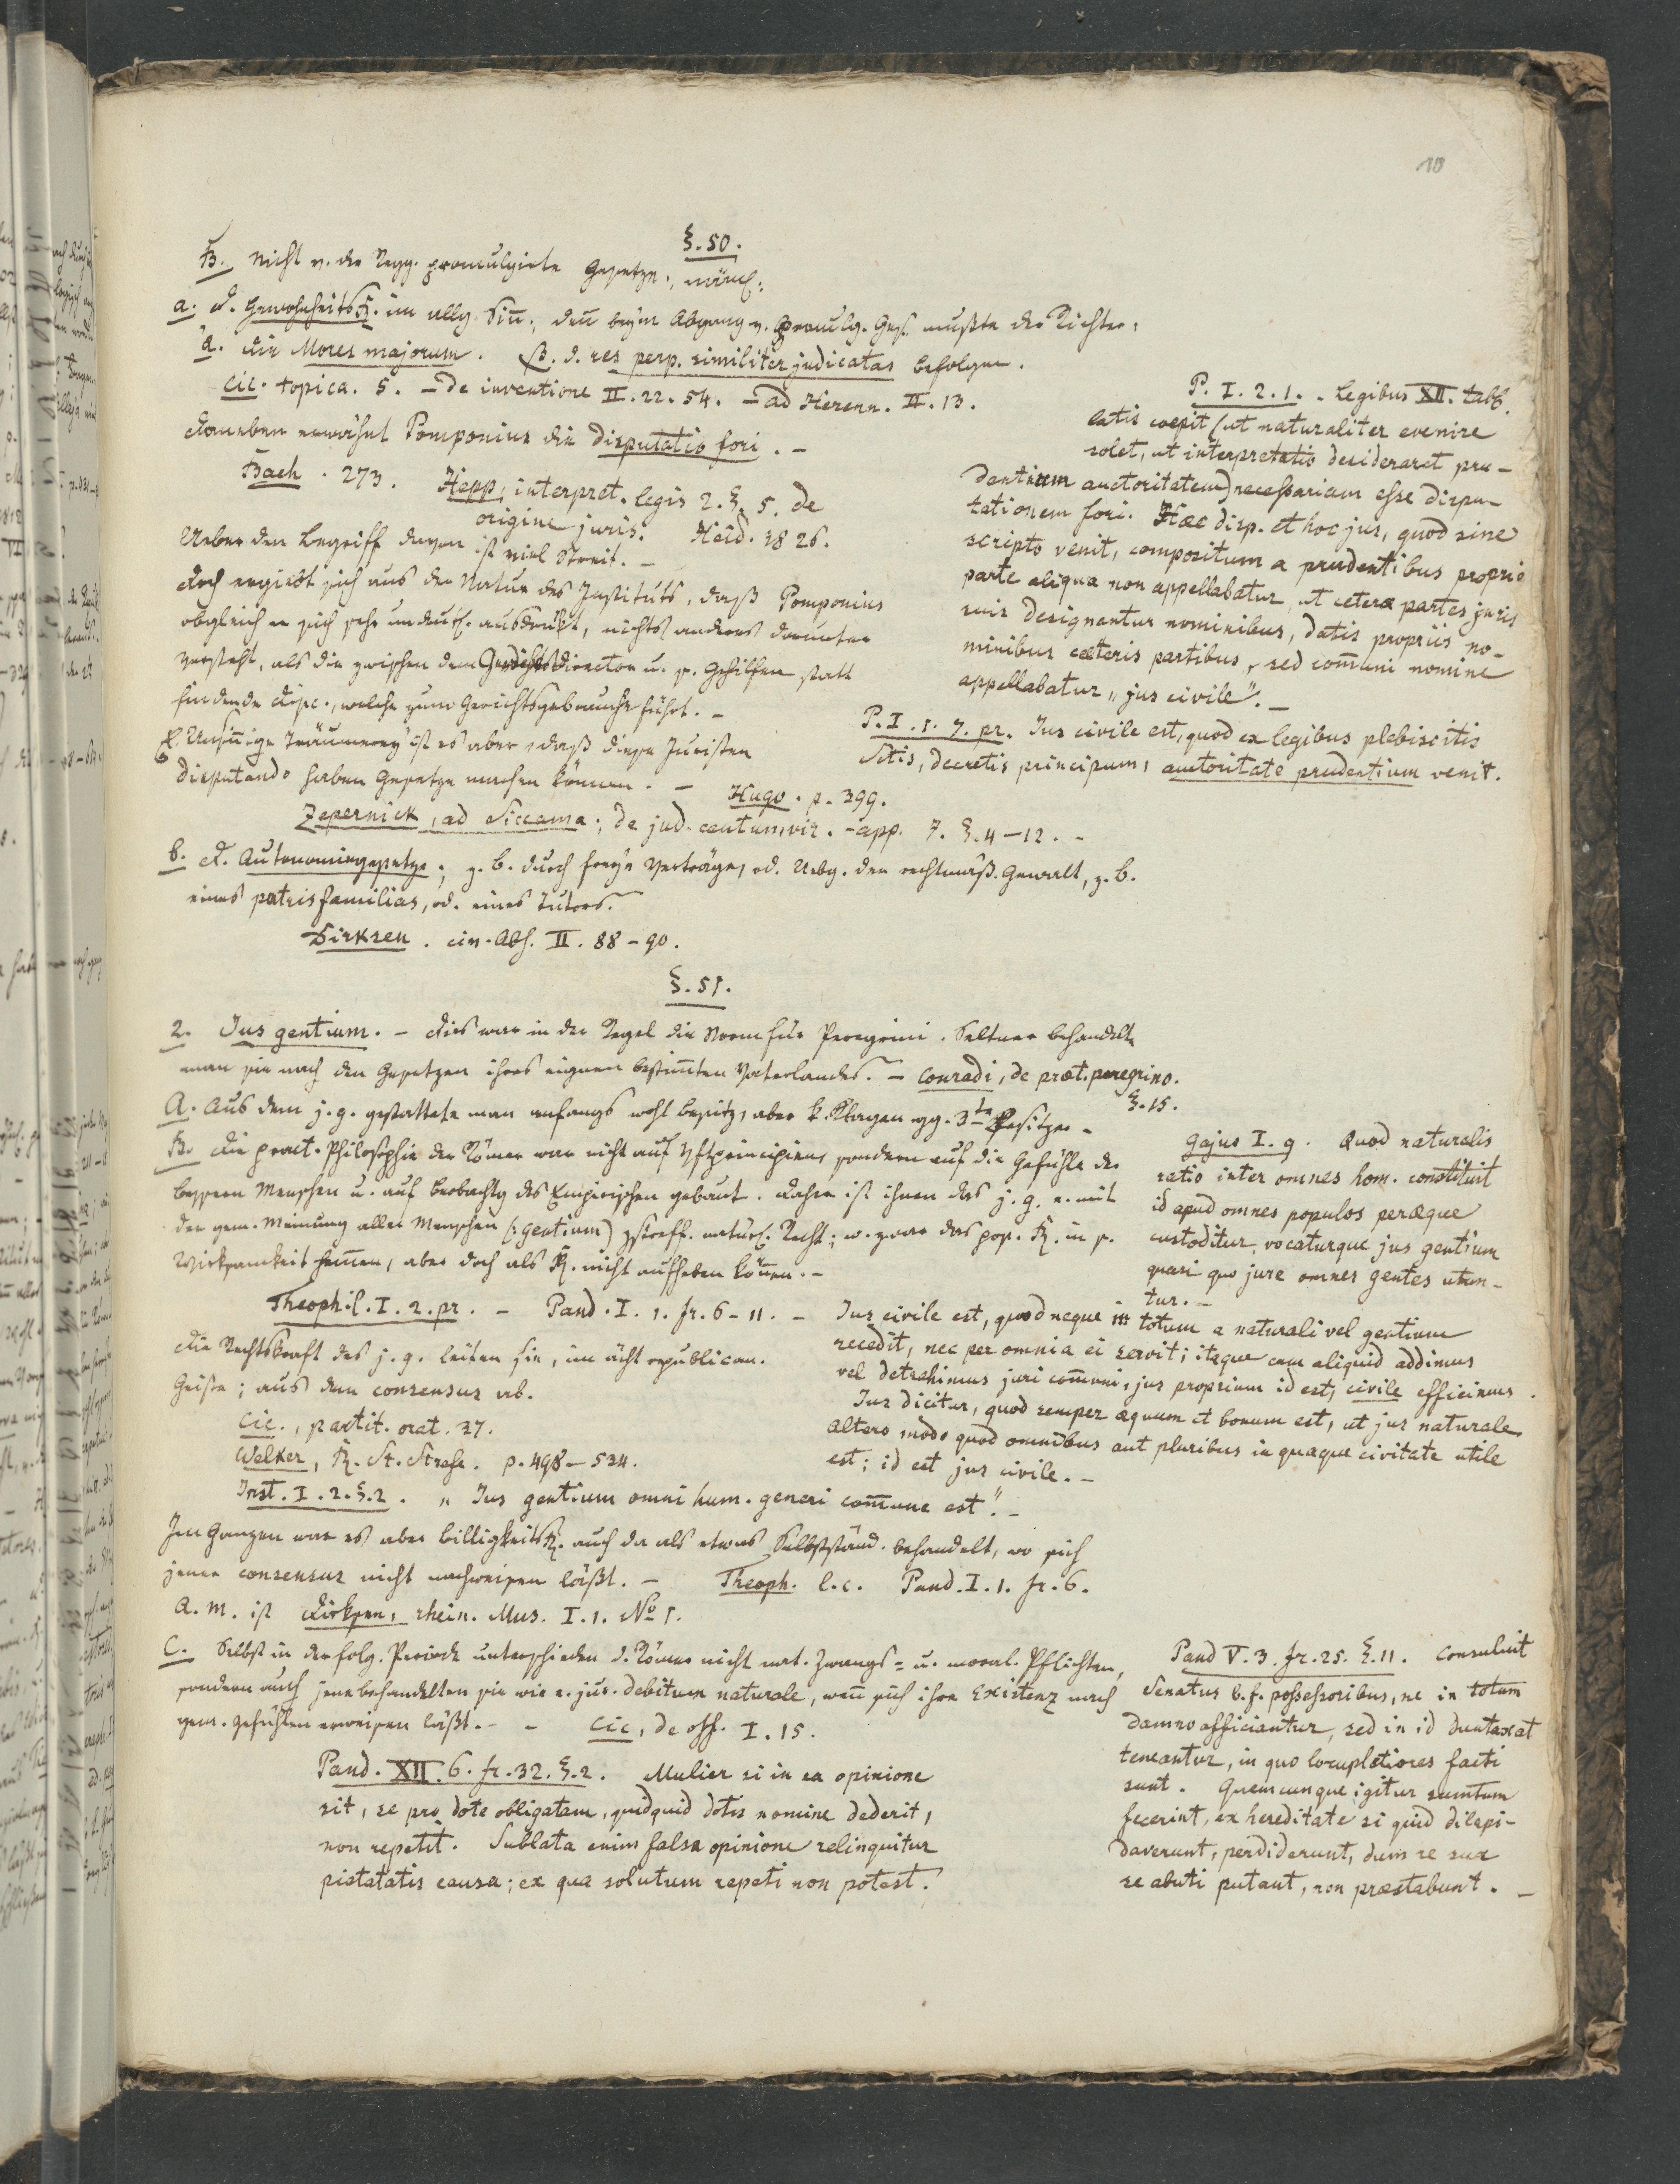 10
§. 50.
B. Nicht v. der Regg. promulgirte Gesetze, näml:
a. D. GewohnheitsR. im allg. Siñ., deñ beym Abgang v. promulg. Ges. mußte der Richter,
α. die Mores majorum. β. d. res perp. similiter judicatas befolgen.
Cic. topica. 5. – De inventione II. 22. 54. – ad Herenn. II. 13.
Daneben erwähnt Pomponius die disputatio fori. –
Bach. 273. Hepp, interpret. legis 2. §. 5. de
origine juris. Heid. 1826.
Ueber den Begriff davon ist viel Streit. –
Doch ergiebt sich aus der Natur des Instituts, daß Pomponius
obgleich er sich sehr undeutl. ausdrückt, nichts anderes darunter
versteht, als die zwischen dem Gerichtsdirector u. s. Gehilfen statt
findende Disp., welche zum Gerichtsgebrauche führt. –
Unsiñige Träumerey ist es aber, daß diese Juristen
disputando haben Gesetze machen können. – Hugo. p. 399.
Zepernick, ad Siccama; de jud. centumvir. – app. 7. §. 4–12. –
P. I. 2. 1. . Legibus XII. tabb.
latis coepit (ut naturaliter evenire
solet, ut interpretatio desideraret pru-
dentium auctoritatem) necessariam esse dispu-
tationem fori. Hæc disp. et hoc jus, quod sine
scripto venit, compositum a prudentibus propria
parte aliqua non appellabatur, ut ceteræ partes juris
suis designantur nominibus, datis propriis no-
minibus cæteris partibus, sed com̃uni nomine
appellabatur „jus civile". –
P. I. 1. 7. pr. Jus civile est, quod ex legibus plebiscitis
Sctis, decretis principum, auctoritate prudentium venit.
b. D. Autonomiegesetze; z. B. durch freye Verträge, od. Uebg. der rechtmäß. Gewalt, z. B.
eines patrisfamilias, od. eines Tutors.
Dirksen. civ. Abh. II. 88–90.
§. 51.
2. Jus gentium. – Dies war in der Regel die Norm für Peregrini. Seltner behandelte
man sie nach den Gesetzen ihres eignen bestim̃ten Vaterlandes. – Conradi, de præt. peregrino.
§. 15.
A. Aus dem j. g. gestattete man anfangs wohl Besitz, aber k. Klagen gg. 3te Besitzer.
B. Die pract. Philosophie der Römer war nicht auf principien, sondern auf die Gefühle der
bessern Menschen u. auf Beobachtg des Empirischen gebaut. Daher ist ihnen das j. g. e. mit
der gem. Meinung aller Menschen (: gentium) zstreff. natürl. Recht; w. zwar das pos. R. in s.
Wirksamkeit hem̃en, aber doch als R. nicht aufheben köñen. –
Theophil. I. 2. pr. – Pand. I. 1. fr. 6–11. –
Gajus I. 9. Quod naturalis
ratio inter omnes hom. constituit
id apud omnes populos peræque
custoditur, vocaturque jus gentium
quasi quo jure omnes gentes utun-
tur. –
Die Rechtskraft des j. g. leiten sie, im ächt republican.
Geiste; aus dem consensus ab.
Cic., partit. orat. 37.
Welker, R. St. Strafe. p. 498–534.
Jus civile est, quod neque in totum a naturali vel gentium
recedit, nec per omnia ei servit; itaque cum aliquid addimus
vel detrahimus juri com̃uni, jus proprium id est, civile efficimus.
Jus dicitur, quod semper æquum et bonum est, ut jus naturale
Altero modo quod omnibus aut pluribus in quaque civitate utile
est; id est jus civile. –
Inst. I. 2. §. 2. „Jus gentium omni hum. generi com̃une est". –
Im Ganzen war es aber BilligkeitsR. auch da als etwas Selbstständ. behandelt, wo sich
jener consensus nicht nachweisen läßt. – Theoph. l. c. Pand. I. 1. fr. 6.
A. M. ist Dirksen, rhein. Mus. I. 1. No 1.
C. Selbst in der folg. Periode unterschieden d. Römer nicht nat. Zwangs= u. moral. Pflichten,
sondern auch jene behandelten sie wie e. jus. debitum naturale, weñ sich ihre Existenz nach
gem. Gefühlen erweisen läßt. – – Cic, de off. I. 15.
Pand. XII. 6. fr. 32. §. 2. Mulier si in ea opinione
sit, se pro dote obligatam, quidquid dotis nomine dederit,
non repetit. Sublata enim falsa opinione relinquitur
pietatis causa; ex qua solutum repeti non potest.
Pand V. 3. fr. 25. §. 11. Consuluit
Senatus b. f. possessoribus, ne in totum
damno afficiantur, sed in id duntaxat
teneantur, in quo locupletiores facti
sunt. Quemcunque igitur sumtum
fecerint, ex hereditate si quid dilapi-
daverunt, perdiderunt, dum re sua
se abuti putant, non præstabunt. –